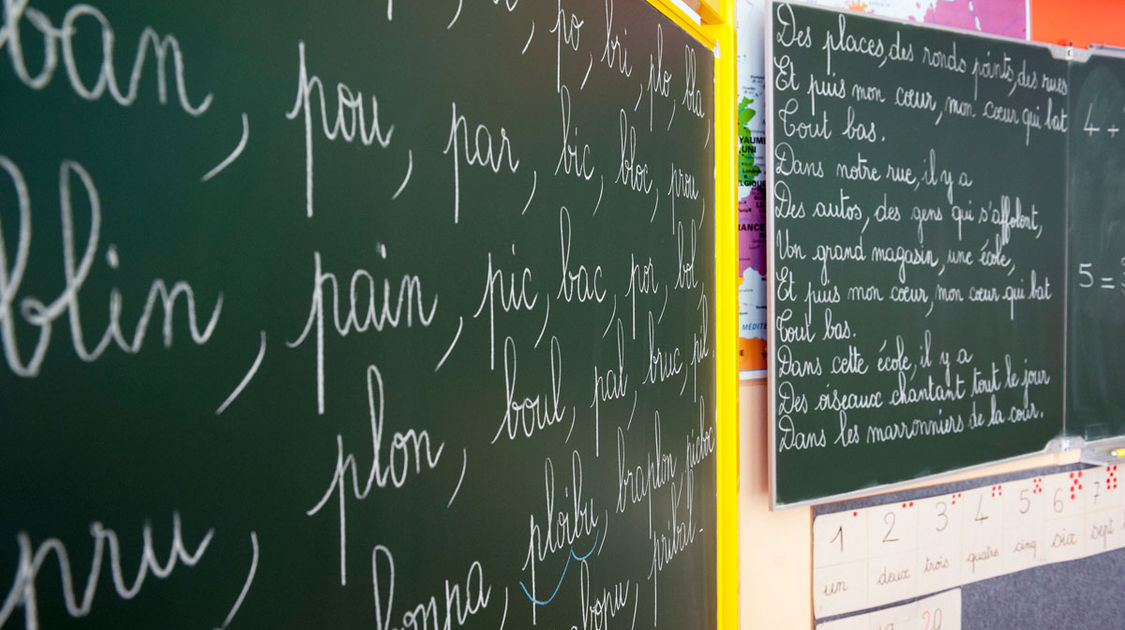 po, bri, plo, bla,
ban, pou, par, bic, bloc, prou,
blin, pain, pic, bac, por, bol,
plon, boul, pal, bruc, pil.
pru, ploibu, braplon, picboc
bonpa, bopu, pribal.
Des places, des ronds points, des rues
Et puis mon cœur, mon cœur qui bat
Tout bas.
Dans notre rue, il y a
Des autos, des gens qui s'affolent,
Un grand magasin, une école,
Et puis mon cœur, mon cœur qui bat
Tout bas.
Dans cette école, il y a
Des oiseaux chantant tout le jour
Dans les marronniers de la cour.
4 +
5 =
1 2 3 4 5 6 7
un deux trois quatre cinq six sept
20